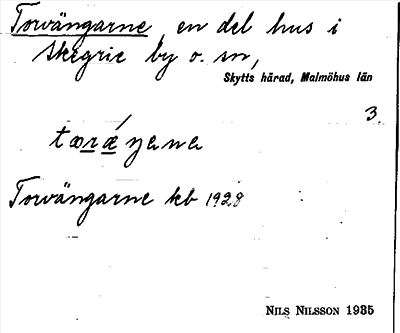 Torvängarne, en del hus i
Skegrie by o. sn,
Skytts härad, Malmöhus län
3.
Torvängarne kb 1928
NILS NILSSON 1935